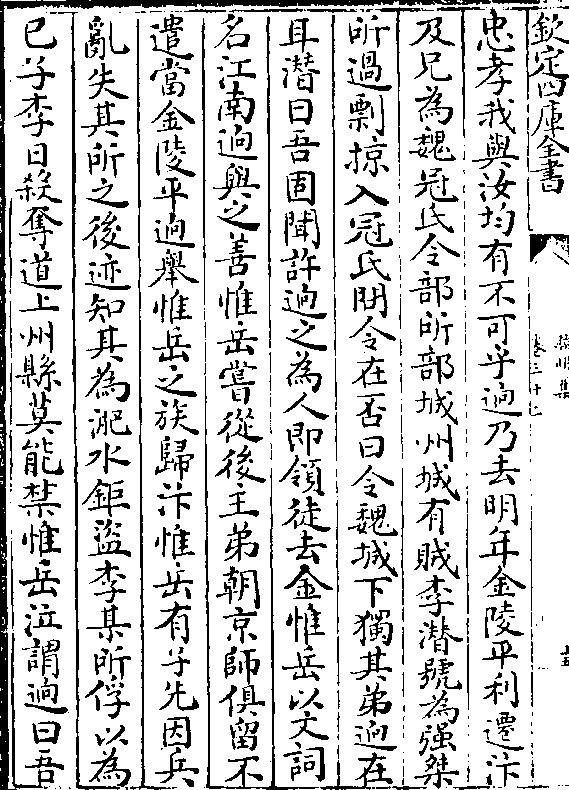 欽定四庫全書
臨川集
卷三十七
十五
忠孝我與汝均有不可乎逈乃去明年金陵平利遷汴
及兄為魏冠氏令部所部城州城有賊李潛號為强桀
所過剽掠入冠氏問令在否曰令魏城下獨其弟逈在
耳潛曰吾固聞許逈之為人即領徒去金惟岳以文詞
名江南逈與之善惟岳嘗從後主弟朝京師俱留不
遣當金陵平逈舉惟岳之族歸汴惟岳有子先因兵
亂失其所之後迹知其為淝水鉅盜李某所俘以為
已子李日殺奪道上州縣莫能禁惟岳泣謂逈曰吾